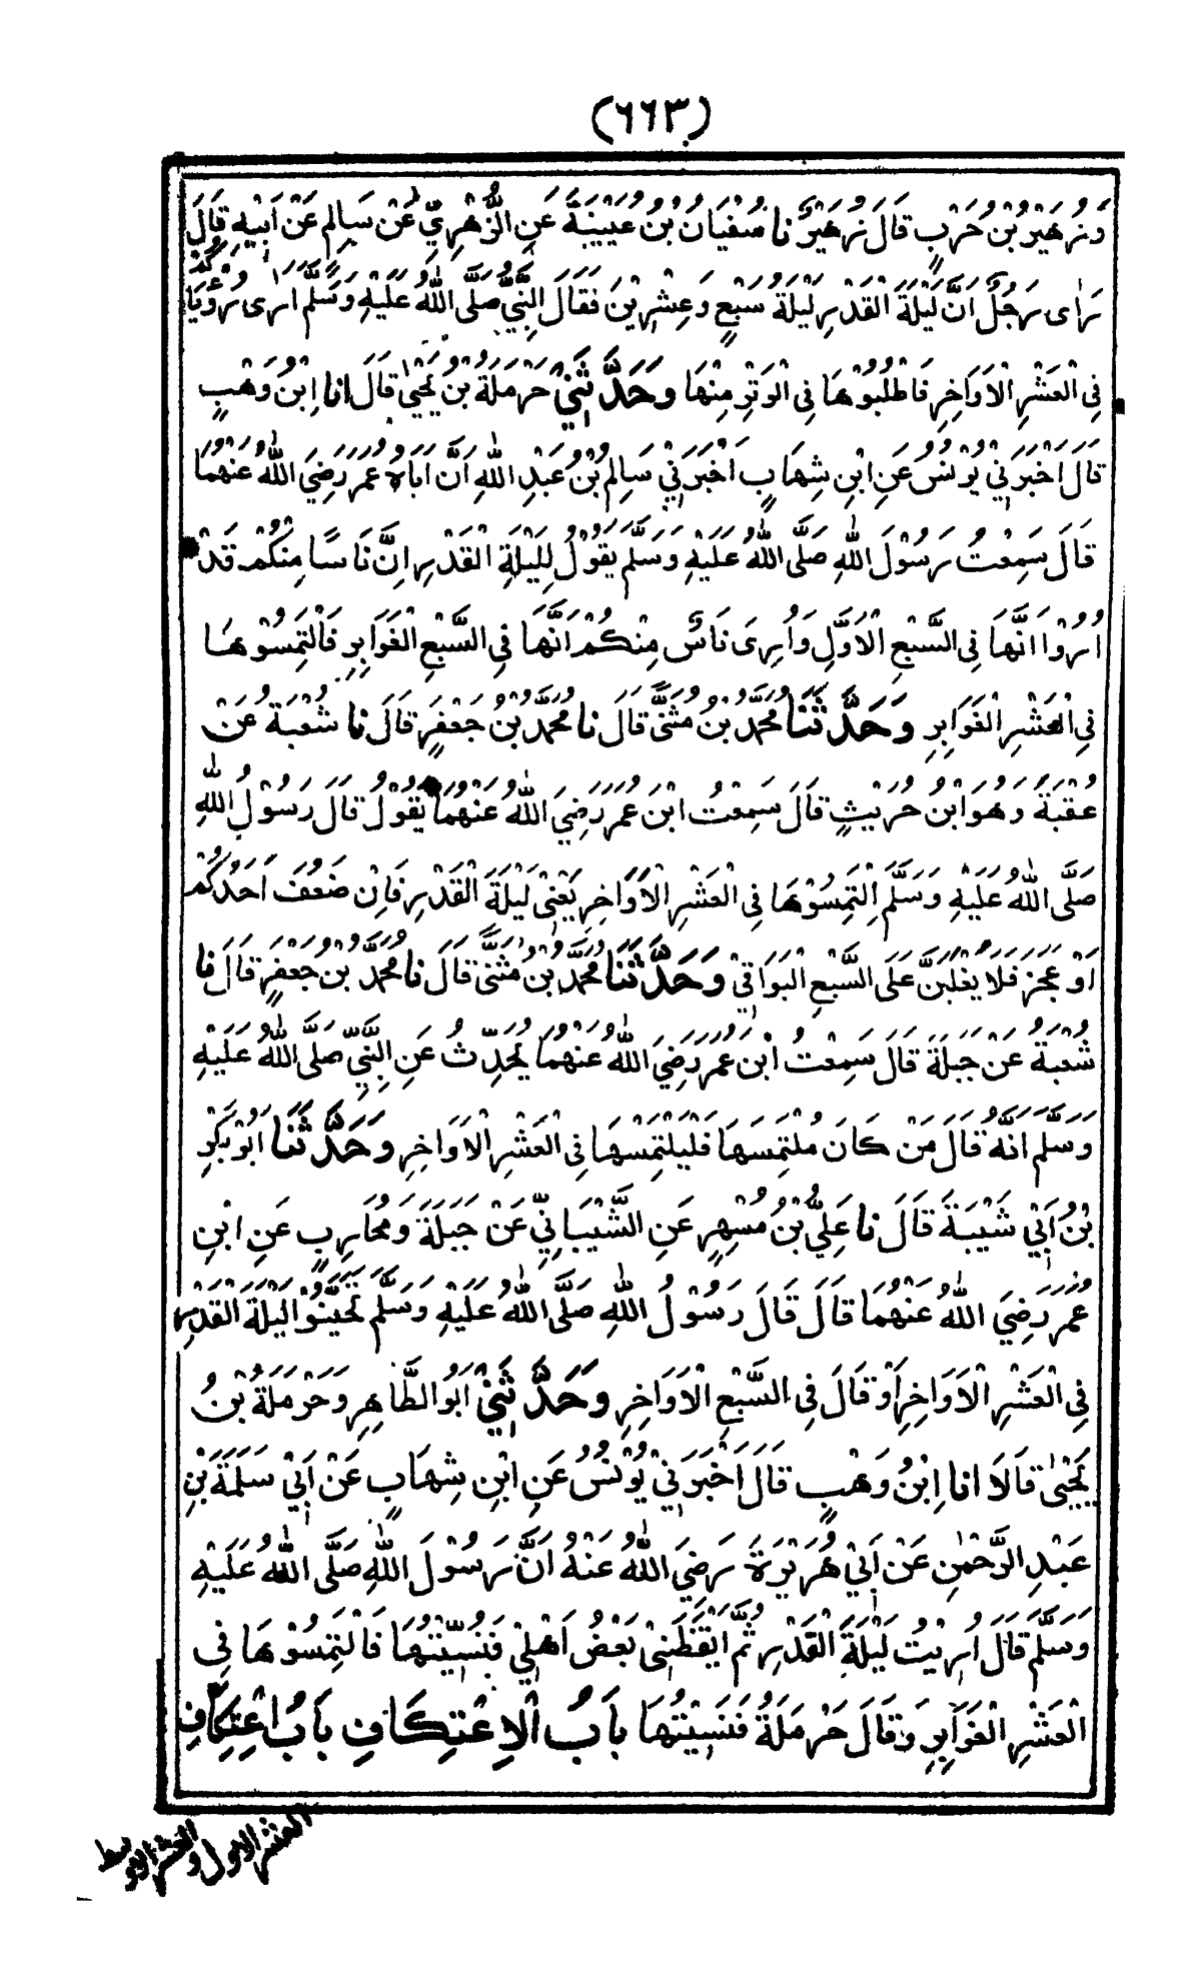 (٦٦٣)
وَزُهَيْرُ بْنُ حَرْبٍ قَالَ زُهَيْرٌ نا سُفْيَانُ بْنُ عُيَيْنَةَ عَنِ الزُّهْرِيِّ عَنْ سَالِمٍ عَنْ أَبِيْهِ قَالَ
رَاٰى رَجُلٌ أَنَّ لَيْلَةَ الْقَدْرِ لَيْلَةُ سَبْعٍ وَعِشْرِيْنَ فَقَالَ النَّبِيُّ صَلَّى اللّٰهُ عَلَيْهِ وَسَلَّمَ اَرٰى رُؤْيَاكُمْ
فِي الْعَشْرِ الْاَوَاخِرِ فَاطْلُبُوْهَا فِي الْوَتْرِ مِنْهَا وَحَدَّثَنِيْ حَرْمَلَةُ بْنُ يَحْيٰى قَالَ انا ابْنُ وَهْبٍ
قَالَ اَخْبَرَنِيْ يُوْنُسُ عَنِ ابْنِ شِهَابٍ اَخْبَرَنِيْ سَالِمُ بْنُ عَبْدِ اللّٰهِ اَنَّ اَبَاهُ عُمَرَ رَضِيَ اللّٰهُ عَنْهُمَا
قَالَ سَمِعْتُ رَسُوْلَ اللّٰهِ صَلَّى اللّٰهُ عَلَيْهِ وَسَلَّمَ يَقُوْلُ لِلَيْلَةِ الْقَدْرِ اِنَّ نَاسًا مِنْكُمْ قَدْ
اُرُوْا اَنَّهَا فِي السَّبْعِ الْاَوَّلِ وَاُرِىَ نَاسٌ مِنْكُمْ اَنَّهَا فِي السَّبْعِ الْغَوَابِرِ فَالْتَمِسُوْهَا
فِي الْعَشْرِ الْغَوَابِرِ وَحَدَّثَنَا مُحَمَّدُ بْنُ مُثَنَّى قَالَ نا مُحَمَّدُ بْنُ جَعْفَرٍ قَالَ نا شُعْبَةُ عَنْ
عُقْبَةَ وَهُوَ ابْنُ حُرَيْثٍ قَالَ سَمِعْتُ ابْنَ عُمَرَ رَضِيَ اللّٰهُ عَنْهُمَا يَقُوْلُ قَالَ رَسُوْلُ اللّٰهِ
صَلَّى اللّٰهُ عَلَيْهِ وَسَلَّمَ اِلْتَمِسُوْهَا فِي الْعَشْرِ الْاَوَاخِرِ يَعْنِيْ لَيْلَةَ الْقَدْرِ فَاِنْ ضَعُفَ اَحَدُكُمْ
اَوْ عَجَزَ فَلَا يُغْلَبَنَّ عَلَى السَّبْعِ الْبَوَاقِيْ وَحَدَّثَنَا مُحَمَّدُ بْنُ مُثَنَّى قَالَ نا مُحَمَّدُ بْنُ جَعْفَرٍ قَالَ نا
شُعْبَةُ عَنْ جَبَلَةَ قَالَ سَمِعْتُ ابْنَ عُمَرَ رَضِيَ اللّٰهُ عَنْهُمَا يُحَدِّثُ عَنِ النَّبِيِّ صَلَّى اللّٰهُ عَلَيْهِ
وَسَلَّمَ اَنَّهُ قَالَ مَنْ كَانَ مُلْتَمِسَهَا فَلْيَلْتَمِسْهَا فِي الْعَشْرِ الْاَوَاخِرِ وَحَدَّثَنَا اَبُوْ بَكْرِ
بْنُ اَبِيْ شَيْبَةَ قَالَ نا عَلِيُّ بْنُ مُسْهِرٍ عَنِ الشَّيْبَانِيِّ عَنْ جَبَلَةَ وَمُحَارِبٍ عَنِ ابْنِ
عُمَرَ رَضِيَ اللّٰهُ عَنْهُمَا قَالَ قَالَ رَسُوْلُ اللّٰهِ صَلَّى اللّٰهُ عَلَيْهِ وَسَلَّمَ تَحَيَّنُوْا لَيْلَةَ الْقَدْرِ
فِي الْعَشْرِ الْاَوَاخِرِ اَوْ قَالَ فِي السَّبْعِ الْاَوَاخِرِ وَحَدَّثَنِيْ اَبُو الطَّاهِرِ وَحَرْمَلَةُ بْنُ
يَحْيٰى قَالَا انا ابْنُ وَهْبٍ قَالَ اَخْبَرَنِيْ يُوْنُسُ عَنِ ابْنِ شِهَابٍ عَنْ اَبِيْ سَلَمَةَ بْنِ
عَبْدِ الرَّحْمٰنِ عَنْ اَبِيْ هُرَيْرَةَ رَضِيَ اللّٰهُ عَنْهُ اَنَّ رَسُوْلَ اللّٰهِ صَلَّى اللّٰهُ عَلَيْهِ
وَسَلَّمَ قَالَ اُرِيْتُ لَيْلَةَ الْقَدْرِ ثُمَّ اَيْقَظَنِيْ بَعْضُ اَهْلِيْ فَنُسِّيْتُهَا فَالْتَمِسُوْهَا فِي
الْعَشْرِ الْغَوَابِرِ وَقَالَ حَرْمَلَةُ فَنَسِيْتُهَا بَابُ الْاِعْتِكَافِ بَابُ اعْتِكَافِ
العشر الاول والعشر الاوسط